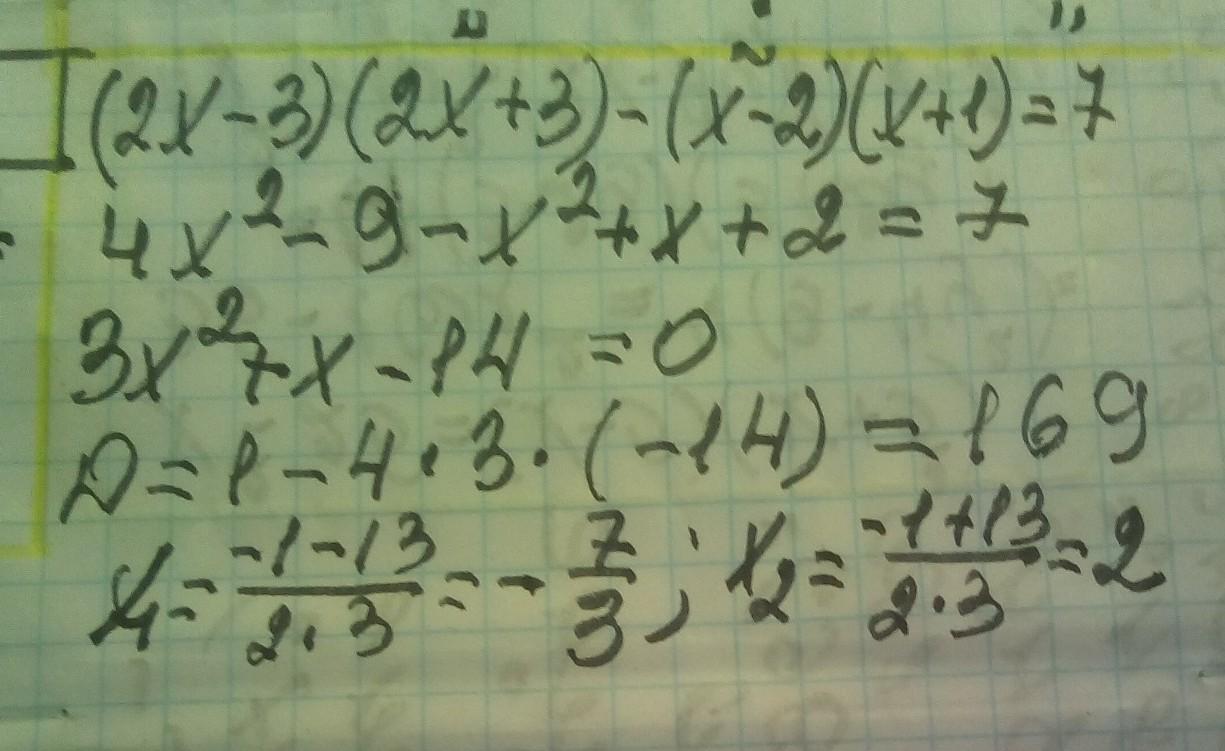 (2x-3)(2x+3)-(x-2)(x+1)=7
4x²-9-x²+x+2=7
3x²+x-14=0
D=1-4·3·(-14)=169
x₁=(-1-13)/(2·3)=-7/3; x₂=(-1+13)/(2·3)=2